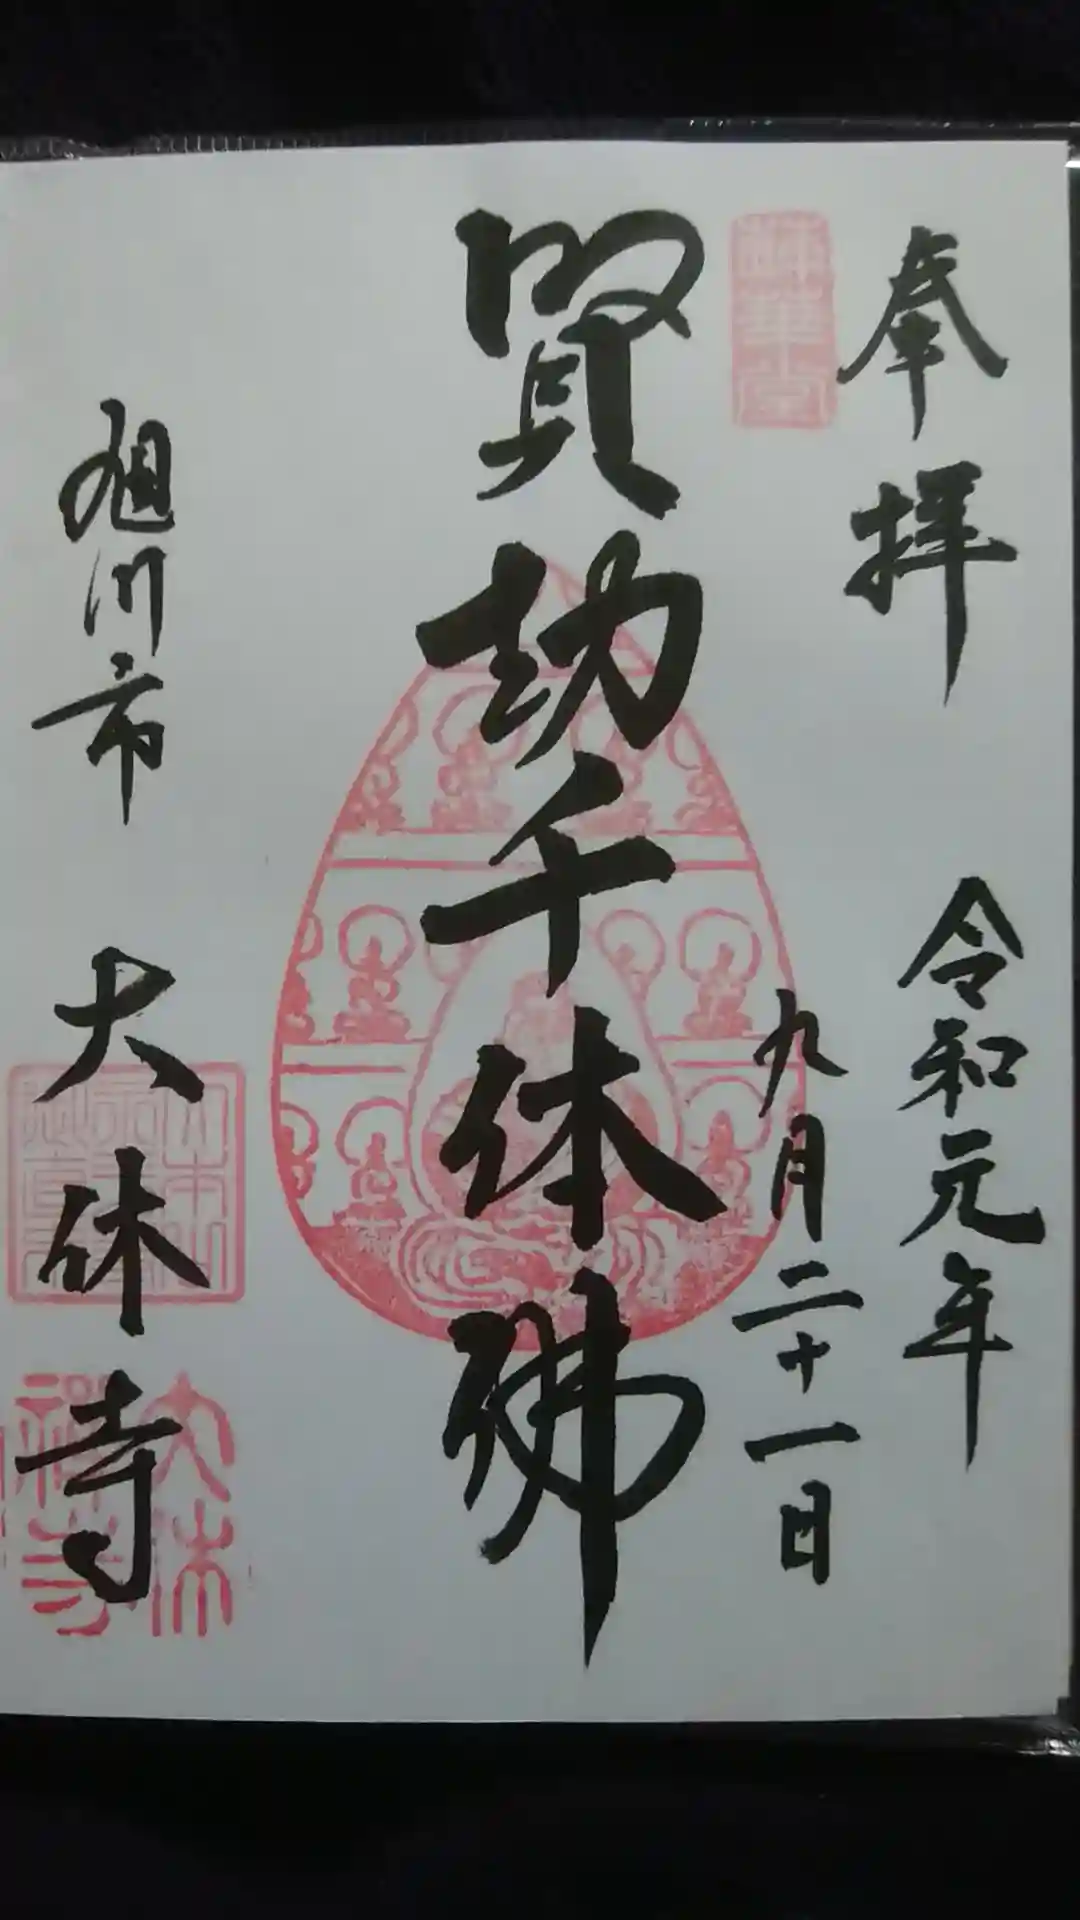 奉拝
令和元年
九月二十一日
賢劫千体佛
旭川市
大休寺
大休
禅寺